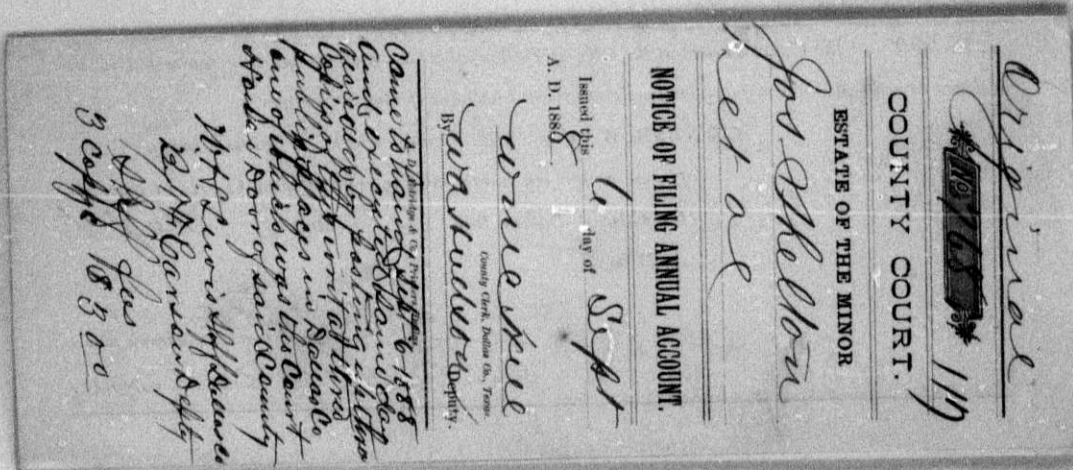 Original
No 768 1119
COUNTY COURT.
ESTATE OF THE MINOR
Jos Shelton
et al
NOTICE OF FILING ANNUAL ACCOUNT.
Issued this 6 day of Sept
A. D. 1888.
County Clerk, Dallas Co., Texas.
By W A Hudson Deputy.
Came to hand Sept 6 1888
and executed same day
by posting up three
Copies of this writ at three
public places in Dallas Co
one of which was the Court
House Door of said County
W H Lewis Shff Dallas Co
Deputy
Shff fees
3 Copys 18 300